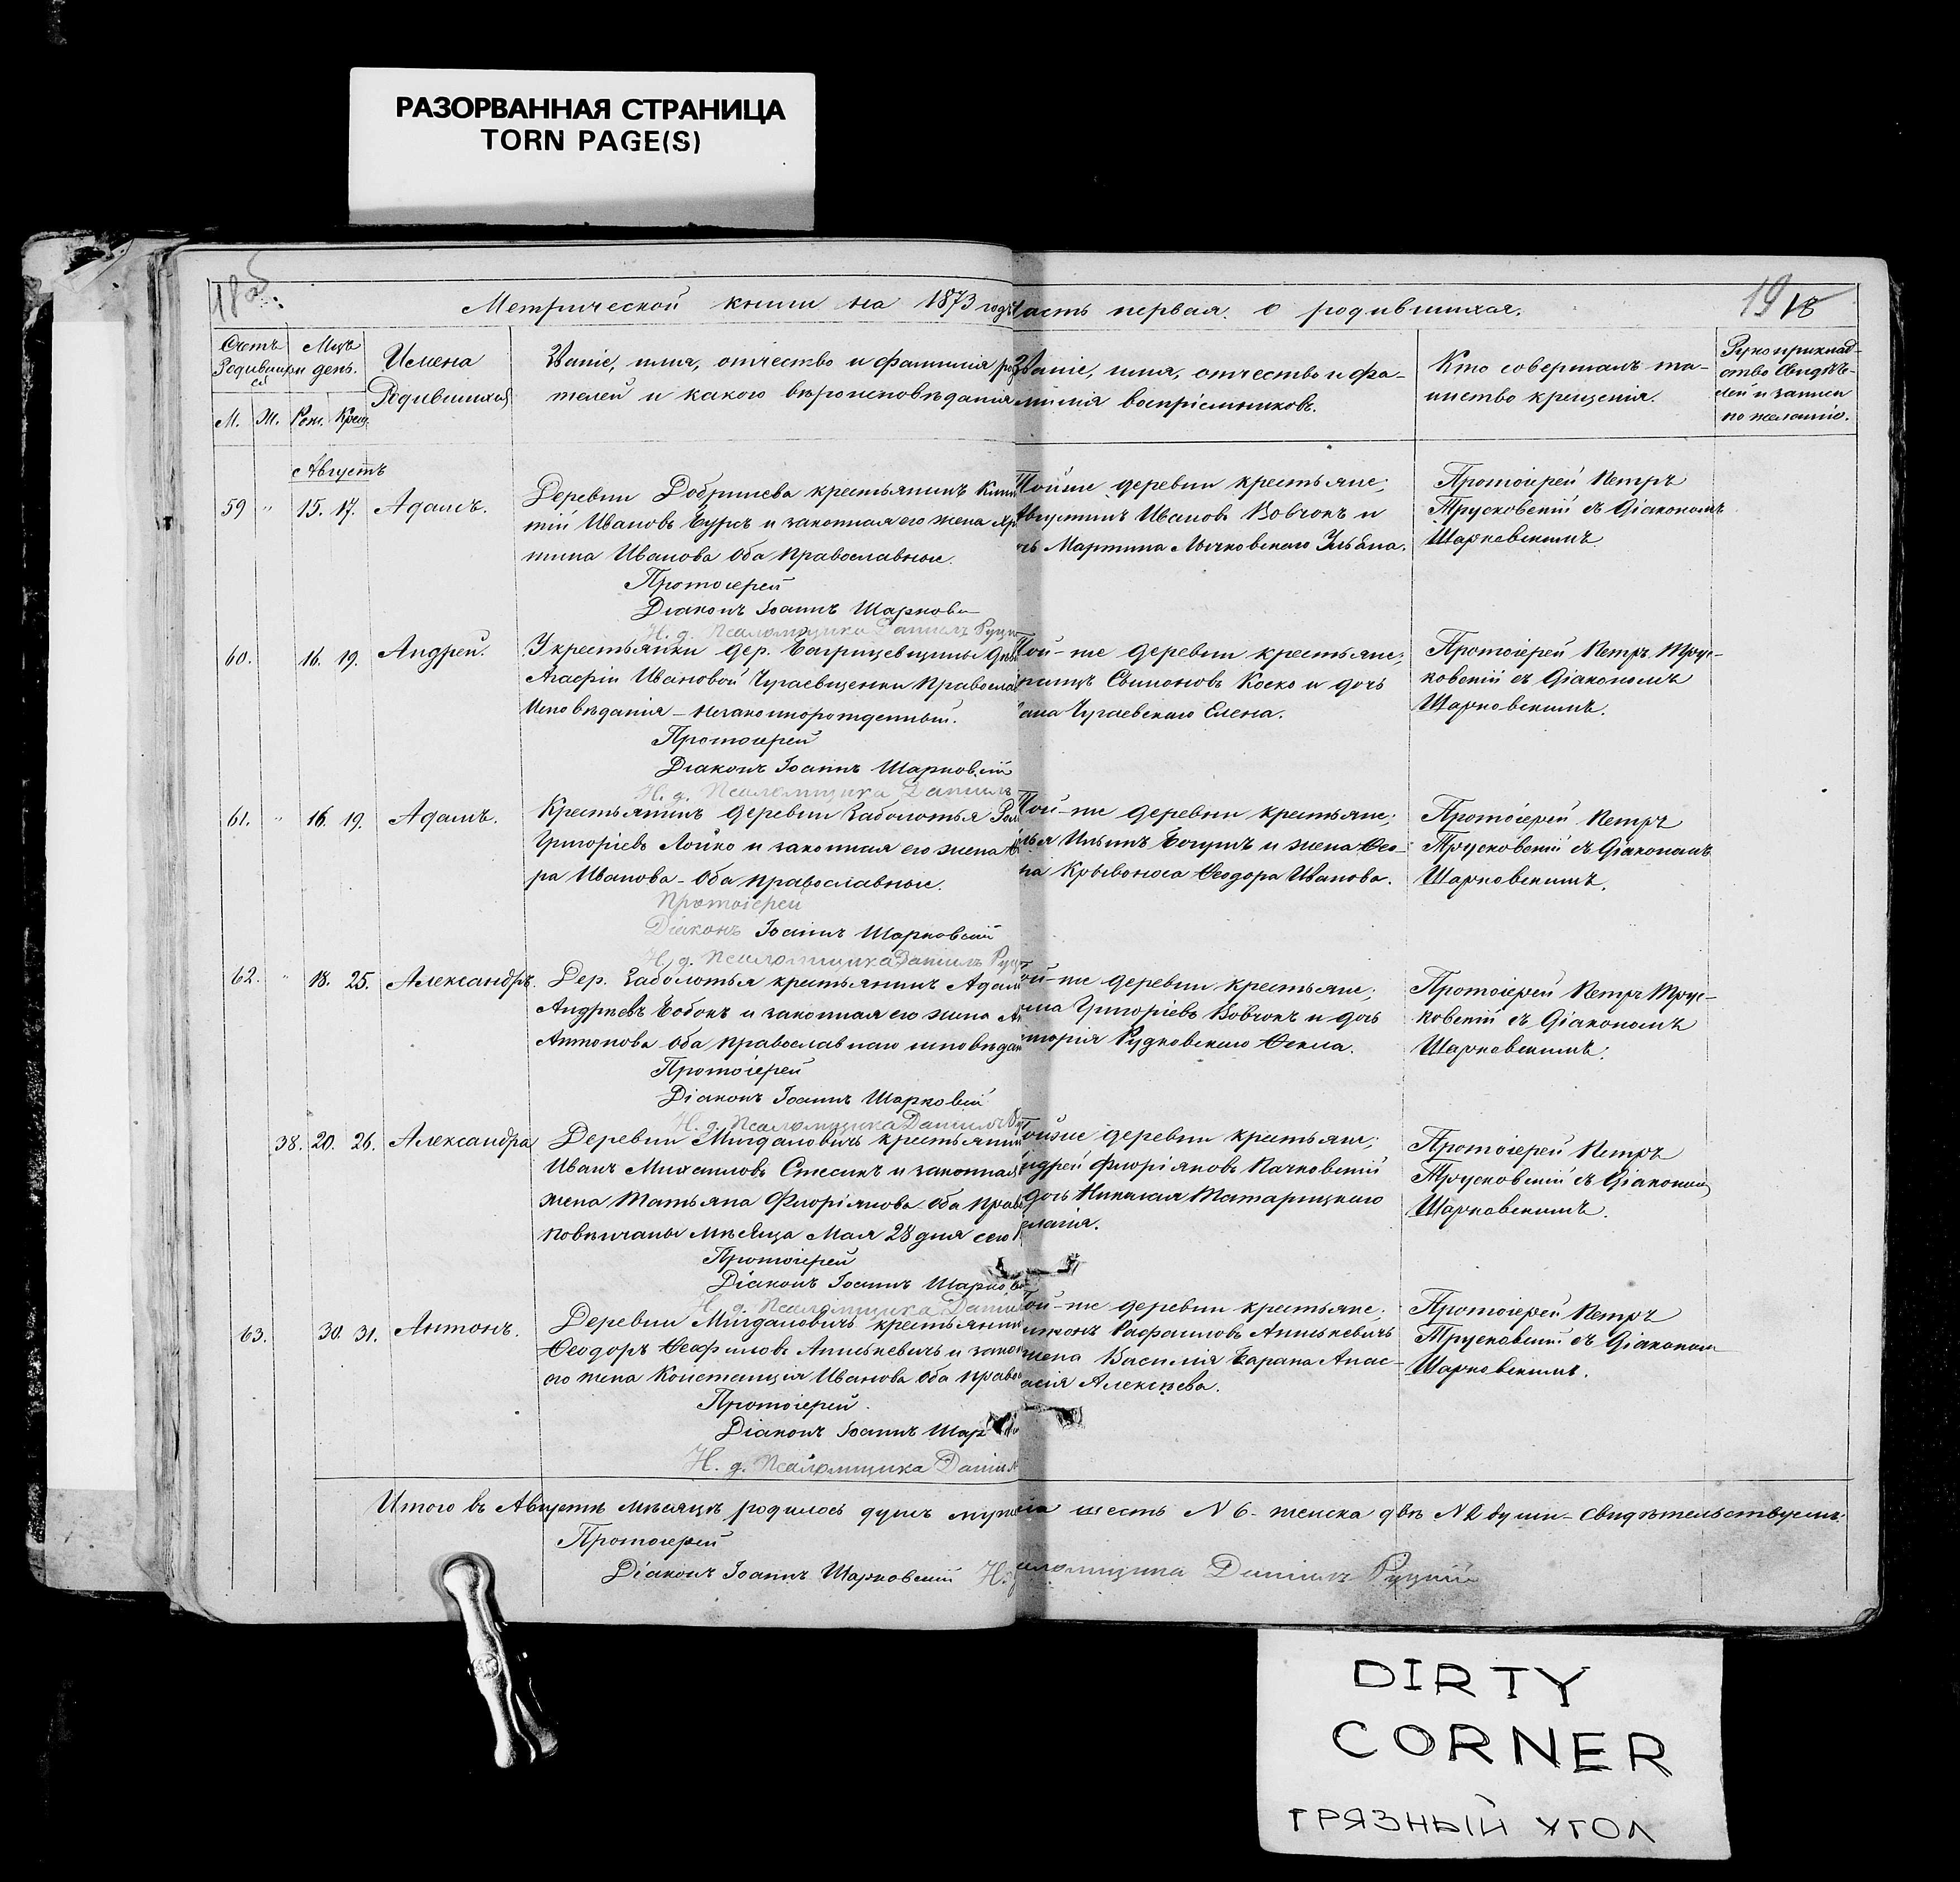 РАЗОРВАННАЯ СТРАНИЦА
TORN PAGE(S)
Метрической книги на 1873 годъ
часть первая о родившихся.
19 18
Счетъ Родивших ся
М. Ж.
Мцъ и день.
Рож. Крещ.
Имена
Родившихся
Званіе, имя, отчество и фамилія ро
телей и какого вѣроисповѣданія
Званіе, имя, отчество и фа-
милія воспріемниковъ.
Кто совершалъ та-
инство крещенія.
Рукоприклад-
ство свидѣте-
лей и записи
по желанію.
Августъ
59 " 15. 17. Адамъ.
Деревни Добринева крестьянинъ
тій Ивановъ Буръ и законная его жена
тина Иванова оба Православные.
Протоіерей
Діаконъ Іоаннъ Шарков
Н. д. Псаломщика Даніилъ Руцк
Тойже деревни крестьяне;
Августинъ Ивановъ Вовчокъ и
Мартина
Протоіерей Петръ
Трусковскій съ Діакономъ
Шарковскимъ.
60. 16. 19. Андрей.
У крестьянки дер.
Агафіи Ивановой Чугаевщенки Правосла
Исповѣданія - Незаконнорожденный.
Протоіерей
Діаконъ Іоаннъ Шарковскій
Н. д. Псаломщика Даніилъ
Той-же деревни крестьяне;
Коско и дочь
Чугаевскаго Елена.
Протоіерей Петръ Трус-
ковскій съ Діакономъ
Шарковскимъ.
61. " 16. 19. Адамъ.
Крестьянинъ деревни Заболотья
Григоріевъ Лойко и законная его жена Ѳ
ра Иванова - Оба православные.
Протоіерей
Діаконъ Іоаннъ Шарковскій
Н. д. Псаломщика Даніилъ Руц
Той-же деревни крестьяне;
Илья Ильинъ Богушъ и жена Ѳео-
на Крывоноса Ѳеодора Иванова.
Протоіерей Петръ
Трусковскій съ Діакономъ
Шарковскимъ.
62. " 18. 25. Александръ.
Дер. Заболотья крестьянинъ Адам
Андреевъ Бобокъ и законная его жена Ан
Антонова оба православнаго исповѣдан
Протоіерей
Діаконъ Іоаннъ Шарковскій
Н. д. Псаломщика Даніилъ
Той-же деревни крестьяне;
Григоріевъ Вовчокъ и дочь
Григорія Рудковскаго Ѳекла.
Протоіерей Петръ Трус-
ковскій съ Діакономъ
Шарковскимъ.
38. 20. 26. Александра
Деревни Мигдаловичъ крестьянин
Иванъ Михаиловъ Стесикъ и законная
жена Татьяна Флоріянова оба прав
повѣнчаны мѣсяца Мая 28 дня сего
Протоіерей
Діаконъ Іоаннъ Шарков
Н. д. Псаломщика Даніи
Тойже деревни крестьяне;
Андрей Флоріяновъ Пачковскій
дочь Николая Татарицкаго
Протоіерей Петръ
Трусковскій съ Діакономъ
Шарковскимъ.
63. 30. 31. Антонъ.
Деревни Мигдаловичъ крестьянин
Ѳеодоръ Ѳеофиловъ Анинкевичъ и закон
его жена Констанція Иванова оба право
Протоіерей
Діаконъ Іоаннъ Шар
Н. д. Псаломщика Даніил
Той-же деревни крестьяне;
Рафаиловъ Анинкевичъ
жена Василія Барана Анас-
асія Алексѣева.
Протоіерей Петръ
Трусковскій съ Діакономъ
Шарковскимъ.
Итого въ Августѣ мѣсяцѣ родилось душъ муже ка шесть N 6 - женска двѣ N 2 души - свидѣтельствуемъ:
Протоіерей
Діаконъ Іоаннъ Шарковскій Н. д. аломщика Даніилъ Руцкій
DIRTY
CORNER
ГРЯЗНЫЙ УГОЛ